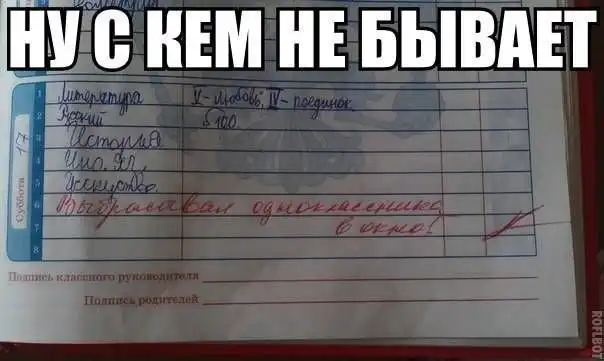 НУ С КЕМ НЕ БЫВАЕТ
Суббота 17
1 Литература V - любовь; IV - поединок.
2 Русский § 100
3 История
4 Ин. яз.
5 Исскуство.
6 Выбрасывал одноклассника
7 в окно!
8
Подпись классного руководителя
Подпись родителей
ROFLBOT